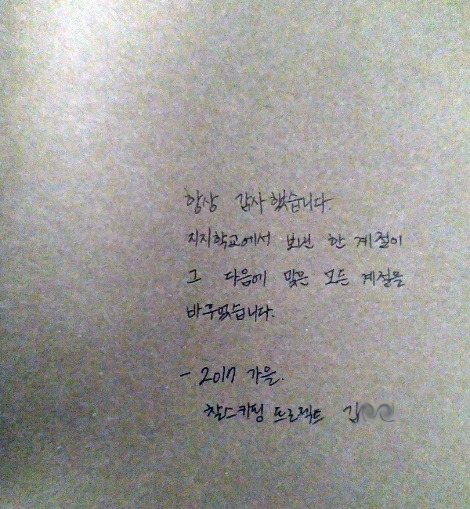 항상 감사했습니다.
지지학교에서 보낸 한 계절이
그 다음에 맞은 모든 계절을
바꾸었습니다.
- 2017 가을.
찰스키핑 프로젝트 김